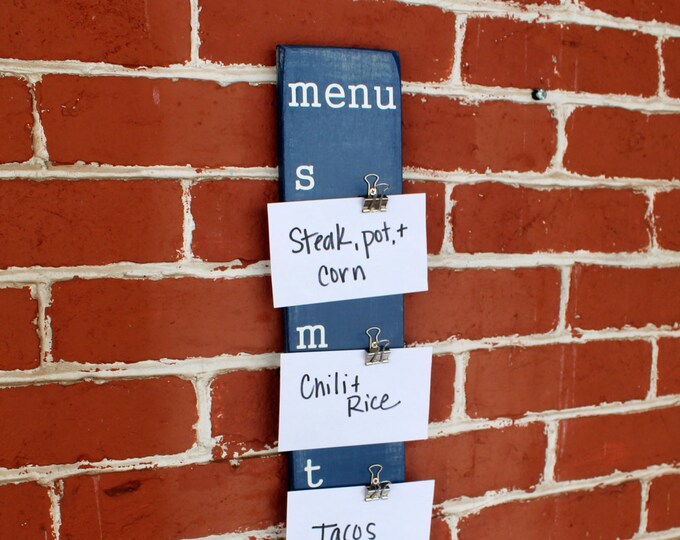 menu
s
Steak, pot, +
corn
m
Chili +
Rice
t
Tacos